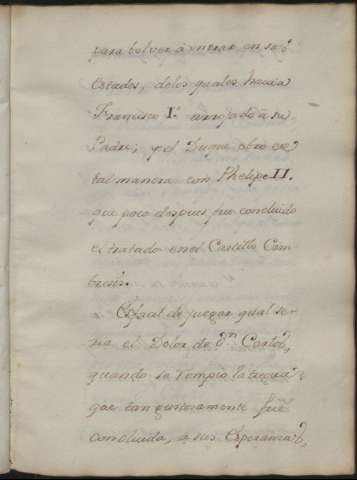 para bolver á entrar en sus
Estados, delos quales havia
Francisco I.º arrojado à su
Padre; y el Duque obró de
tal manera con Phelipe II.
que poco despues fue concluido
el tratado en el Castillo Cam-
bresis.
Es facil de juzgar qual se-
ria el Dolor de Dn Carlos,
quando se rompió la tregua
que tan gustosamente fue
concluida, a sus Esperanzas,